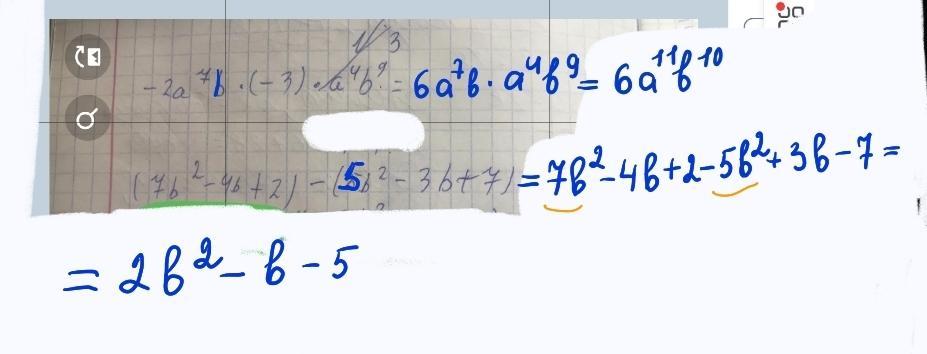 √3
-2a⁷b · (-3) · a⁴b⁹ = 6a⁷b · a⁴b⁹ = 6a¹¹b¹⁰
(7b² - 4b + 2) - (5b² - 3b + 7) = 7b² - 4b + 2 - 5b² + 3b - 7 =
= 2b² - b - 5